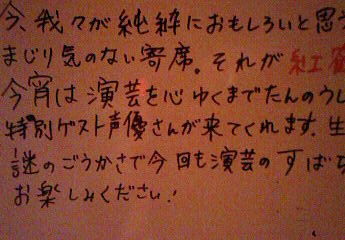 今、我々が純粋におもしろいと思う
まじり気のない寄席。それが紅
今宵は演芸を心ゆくまでたんのうし
特別ゲスト声優さんが来てくれます。生
謎のごうかさで今回も演芸のすばら
お楽しみください!